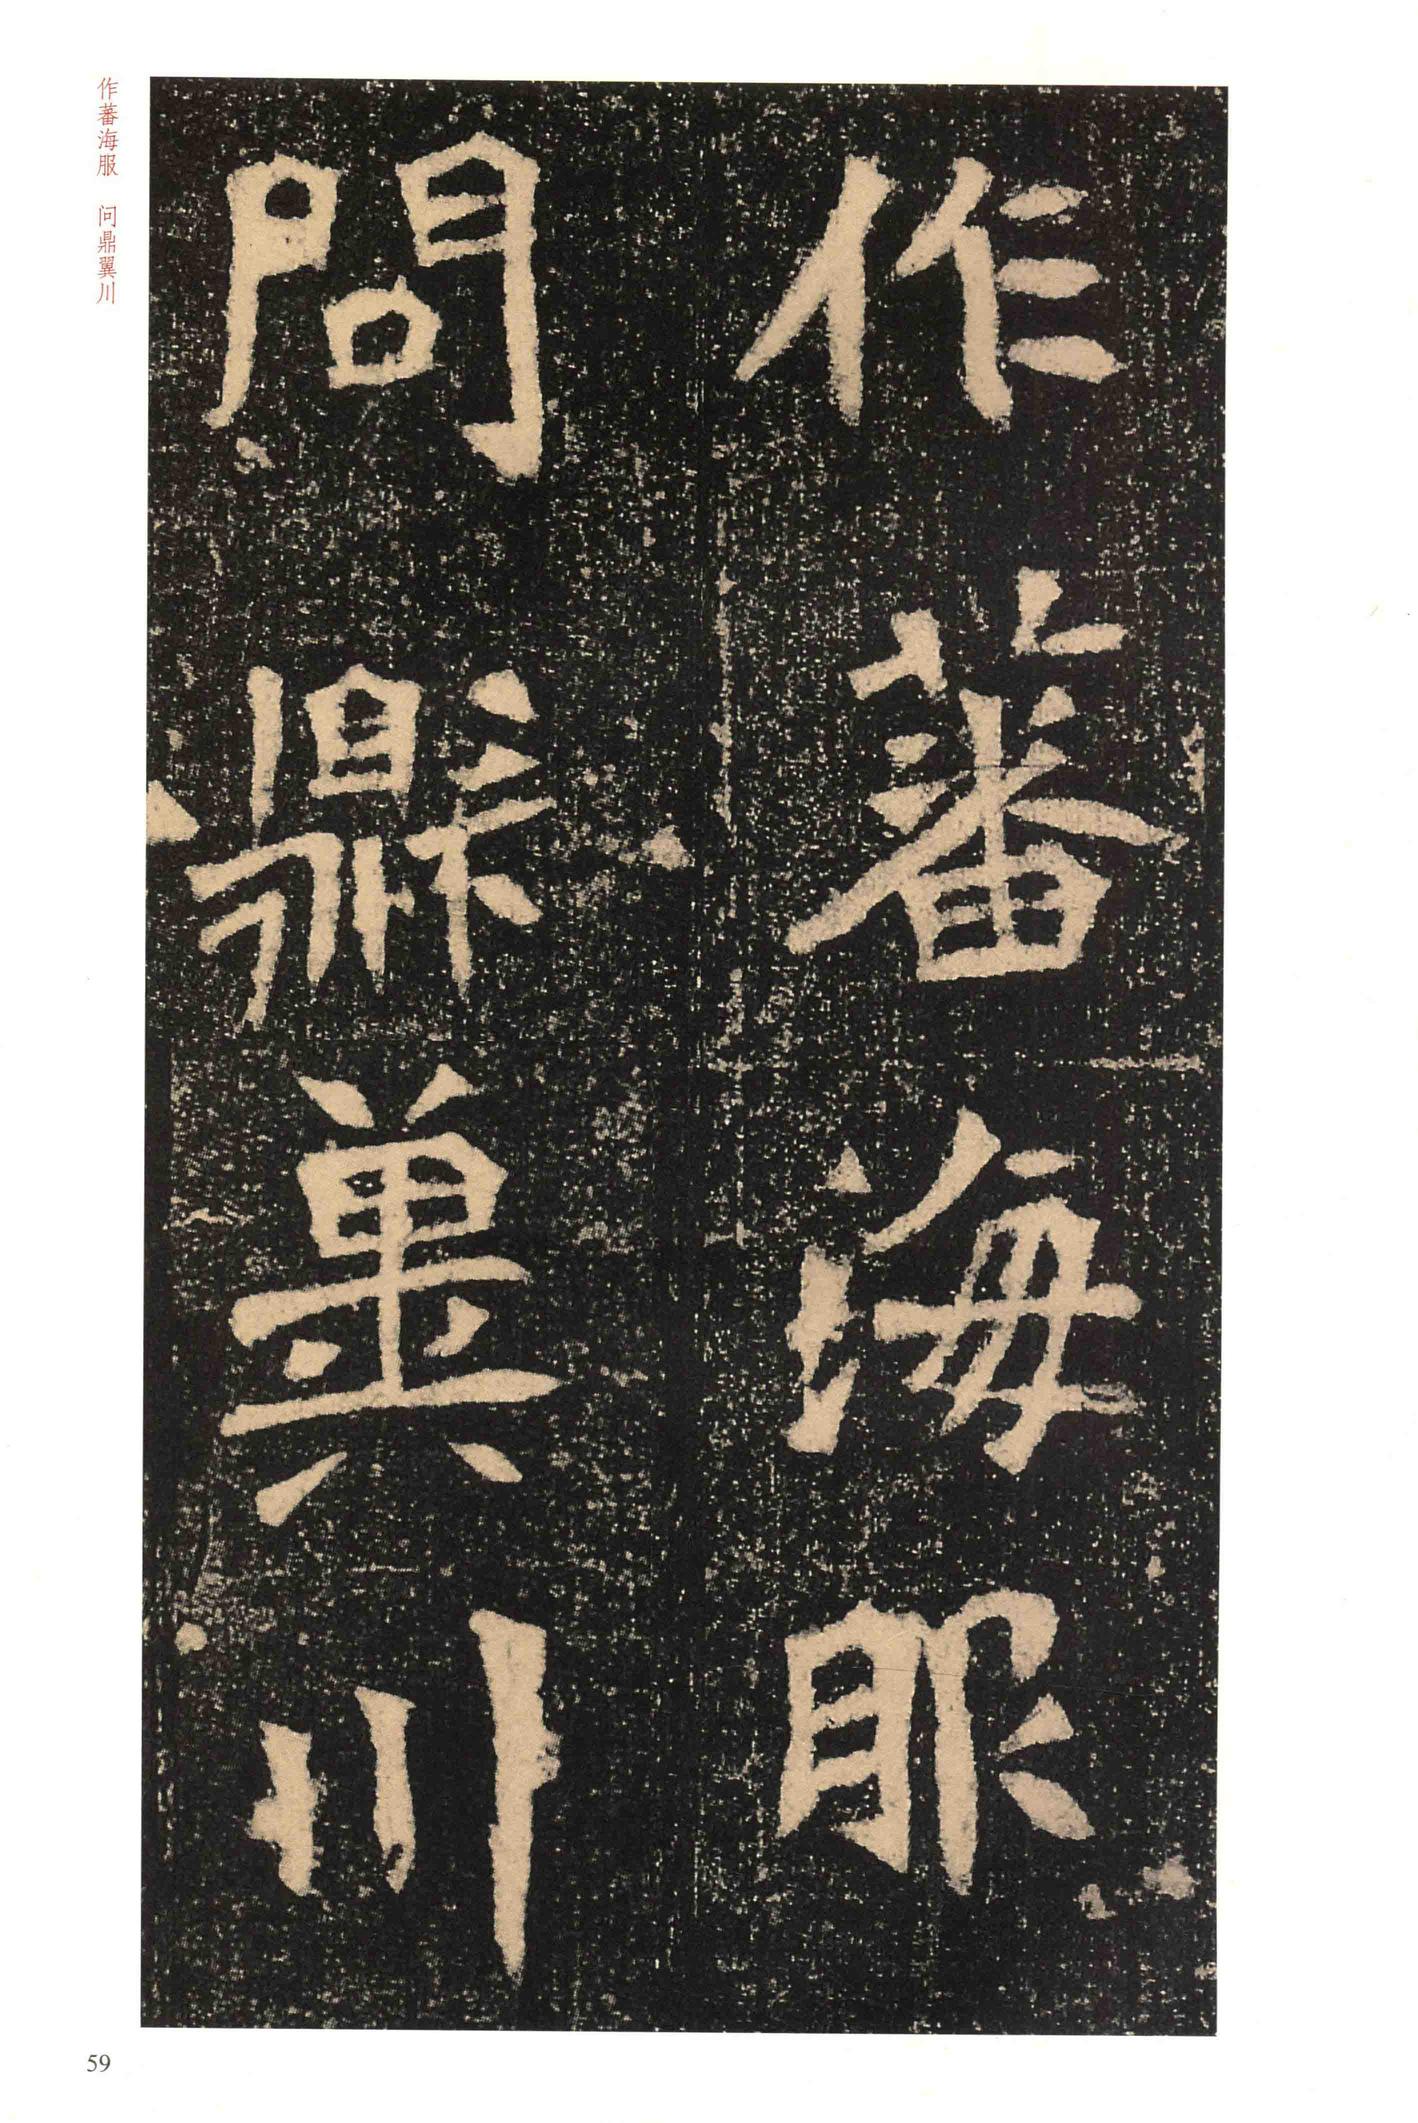 作蕃海服
問鼎冀川
作蕃海服　问鼎翼川
59